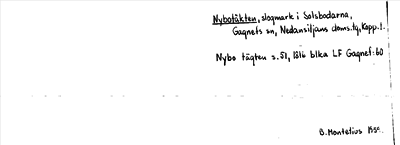 Nybotäkten, slogmark i Solsbodarna,
Gagnefs sn, Nedansiljans doms.tg, Kopp.l.
Nybo tägten s. 51, 1816 blka LF Gagnef: 60
B. Montelius 1950.